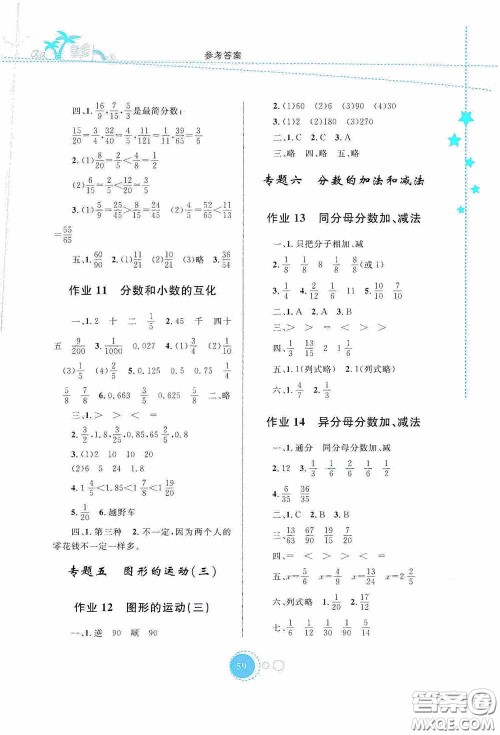 参考答案
四、1. 16/9, 7/15, 5/3是最简分数;
15/20=3/4, 44/11=4/1, 11/121=1/11, 13/39=1/3
2.(1) 8/20=2/5<4/8=1/2
(2) 6/15=2/5<9/12=3/4
3.(1) 5/8=25/40 (2) 9/11>8/11 (3) 10/13=50/65<11/13
=55/65
五、1. 60/90 2.(1) 11/21 (2) 10/11 (3)略 3. 36/54
作业 11 分数和小数的互化
一、1.2 十 二 1/5 2.45 千 四十
五 9/200 3. 1/1000 0.027 4.(1) 3/5 (2) 9/10
(3) 3/20 5.(1)0.125 0.5 0.75 1/4
5/8 7/8 6.0.663 3/5 0.625 二、略
三、1.> < = <
2. 1.8, 3/25, 0.4, 2/5, 3/8
3.(1)2 10 10 20
(2)6 5 24
4. 1 4/5<1.85<1 7/8<1 9/10
5. 1/20 6.越野车
四、1.第三种 2.不一定,因为两个人的
零花钱不一定一样多。
专题五 图形的运动(三)
作业 12 图形的运动(三)
一、1.逆 90 顺 90
2.(1)60 (2)90 (3)90 (4)270
3.(1)O (2)180 (3)270
二、1.C 2.C 3.A
三、略 四、略 五、略
专题六 分数的加法和减法
作业 13 同分母分数加、减法
一、1.只把分子相加、减
2. 1/8 3. 1/8 7 1/8 8/8(或1)
4. 3/8 5. 1/7 6. 17/10 7/10
二、1.A 2.A 3.B
三、= > > = = >
四、1/3 3/13 1/2 1/4
五、1. 3/20(列式略) 2.1(列式略)
六、1. 4/7 2. 1/13
作业 14 异分母分数加、减法
一、1.通分 同分母分数加、减
2.12 3. 1/3 2/3 1/6 1/6 1/2
4. 6/35 36/35
二、1.C 2.B 3.A
三、13/63 67/90 13/15 17/56
四、= < = > = <
五、x=5/6 x=4/9 x=1/2 x=2/3
六、列式略 4/15 31/40 1/6
七、1/6 1/12 1/30 1/4 1/5 1/14
59
答案圈
MXQE.COM